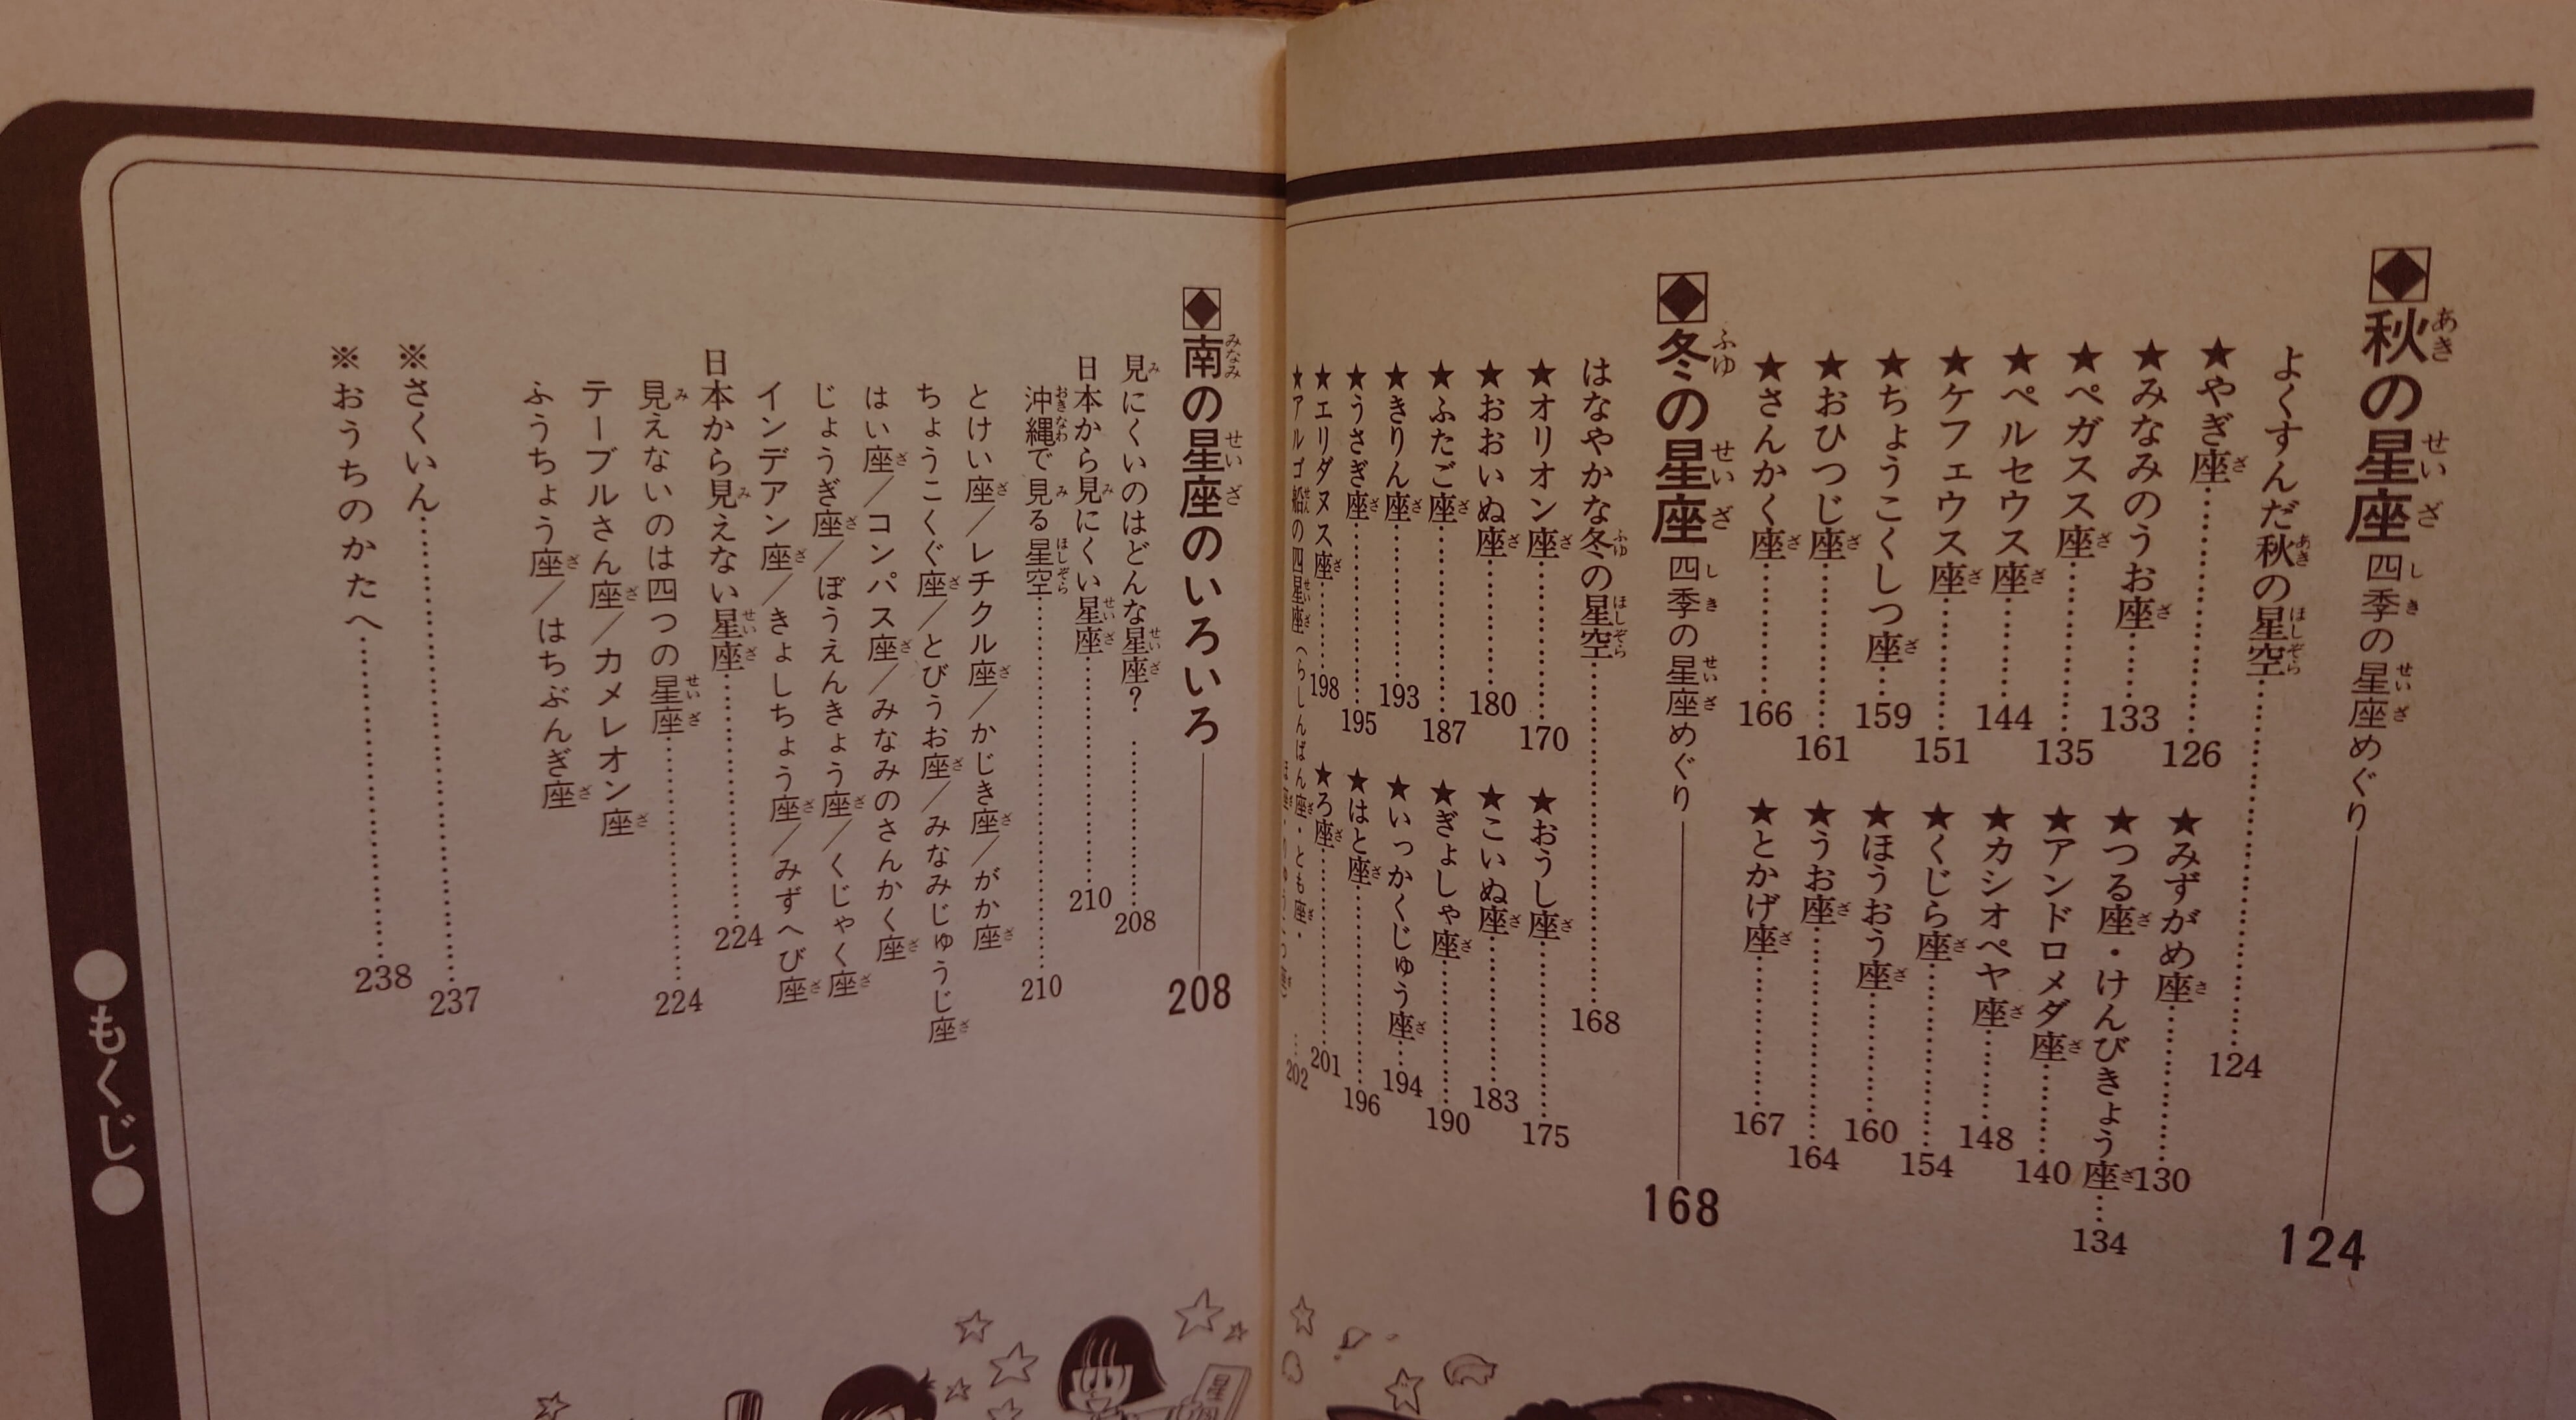 秋の星座 四季の星座めぐり 124
よくすんだ秋の星空 124
★やぎ座 126
★みずがめ座 130
★みなみのうお座 133
★つる座・けんびきょう座 134
★ペガスス座 135
★アンドロメダ座 140
★ペルセウス座 144
★カシオペヤ座 148
★ケフェウス座 151
★くじら座 154
★ちょうこくしつ座 159
★ほうおう座 160
★おひつじ座 161
★うお座 164
★さんかく座 166
★とかげ座 167
冬の星座 四季の星座めぐり 168
はなやかな冬の星空 168
★オリオン座 170
★おうし座 175
★おおいぬ座 180
★こいぬ座 183
★ふたご座 187
★ぎょしゃ座 190
★きりん座 193
★いっかくじゅう座 194
★うさぎ座 195
★はと座 196
★エリダヌス座 198
★ろ座 201
★アルゴ船の四星座(らしんばん座・とも座・ 202
南の星座のいろいろ 208
見にくいのはどんな星座? 208
日本から見にくい星座 210
沖縄で見る星空 210
とけい座/レチクル座/かじき座/がか座
ちょうこくぐ座/とびうお座/みなみじゅうじ座
はい座/コンパス座/みなみのさんかく座
じょうぎ座/ぼうえんきょう座/くじゃく座
インデアン座/きょしちょう座/みずへび座
日本から見えない星座 224
見えないのは四つの星座 224
テーブルさん座/カメレオン座
ふうちょう座/はちぶんぎ座
※さくいん 237
※おうちのかたへ 238
●もくじ●
星